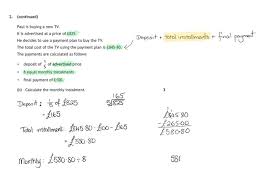 2. (continued)
Paul is buying a new TV.
It is advertised at a price of £825.
He decides to use a payment plan to buy the TV.
The total cost of the TV using the payment plan is £845·80.
The payments are calculated as follows:
• deposit of 1/5 of advertised price
• 8 equal monthly instalments
• final payment of £100.
Deposit + total installments + final payment
(b) Calculate the monthly instalment. 3
Deposit: 1/5 of £825
165
5)825
= £165
Total installment: £845·80 - £100 - £165
= £580·80
£845·80
£580·80
Monthly: £580·80 ÷ 8